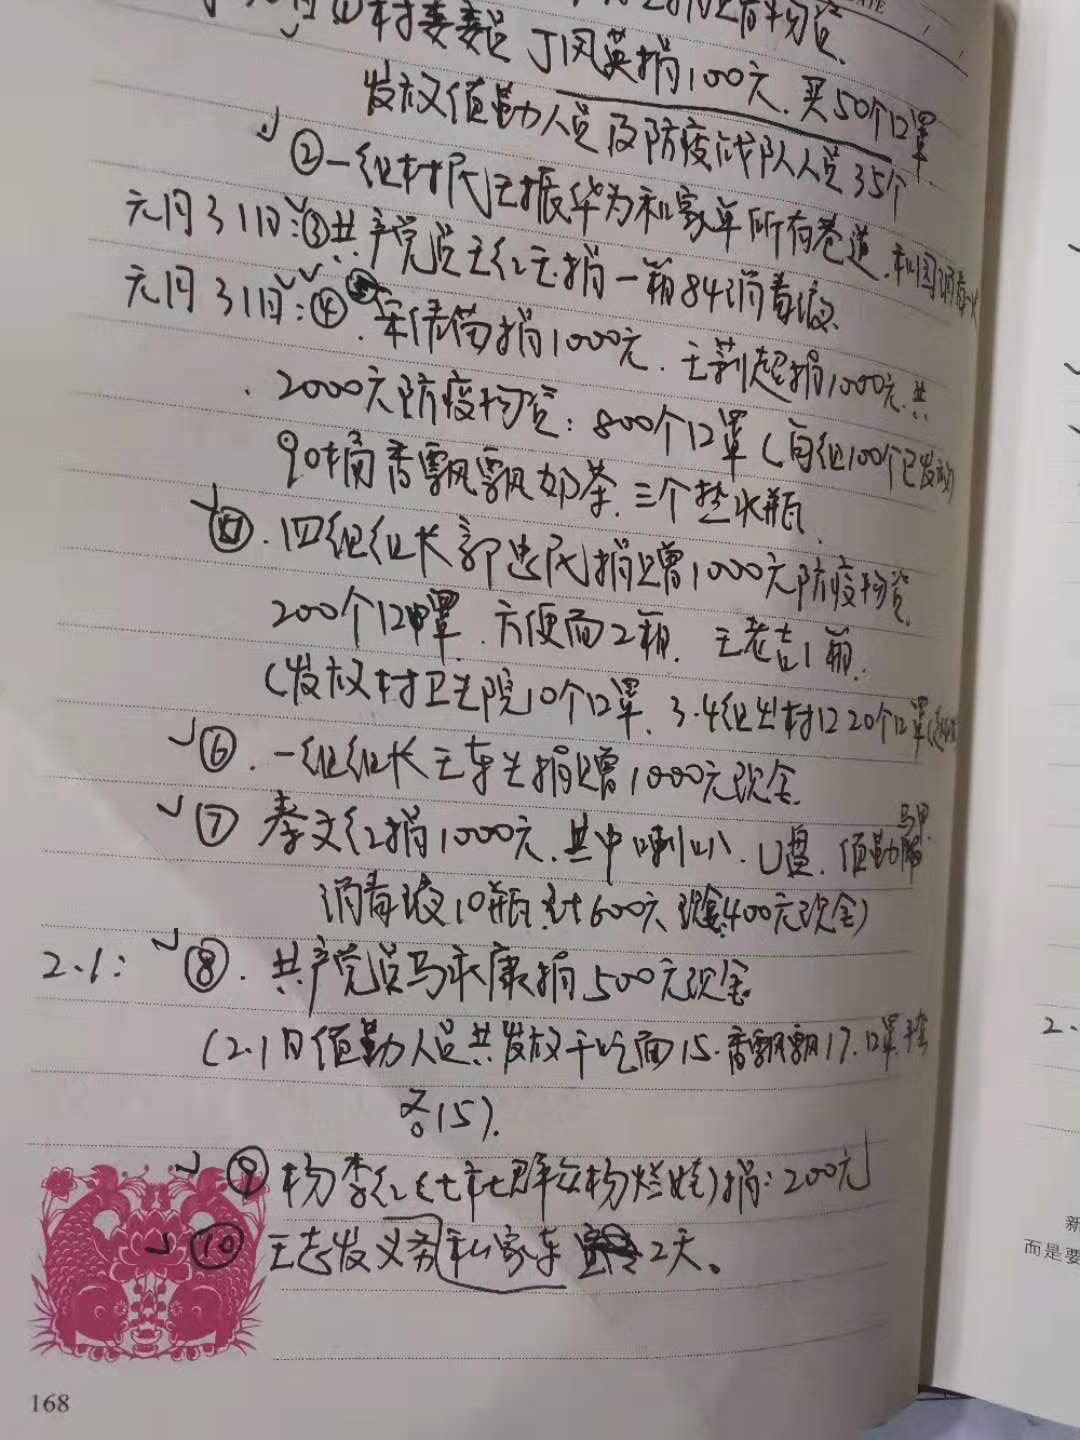 村委委员丁风英捐100元.买50个口罩
发放值勤人员及防疫战队人员35个
②一组村民王振华为私家车所有巷道.
元月31日:③共产党员王红玉捐一箱84消毒液.
元月31日:④.宋倩茹捐1000元.王莉超捐1000元.共
2000元防疫物资:800个口罩(每组100个已发放)
90桶香飘飘奶茶.三个热水瓶.
.四组组长郭忠民捐赠1000元防疫物资
200个口罩.方便面2箱.王老吉1箱.
(发放村卫生院10个口罩、3.4组出村口20个口罩
⑥.一组组长王车生捐赠1000元现金.
⑦ 秦文红捐1000元.其中喇叭.U盘.值勤
马甲
消毒液10瓶计600元 400元现金)
2.1: ⑧.共产党员马永康捐500元现金
(2.1日值勤人员共发放干吃面15.香飘飘17.口罩手套
各15).
⑨ 杨李红(七社群众杨)捐:200元
⑩ 王志发义务私家车 2天。
168
2.
新
而是要